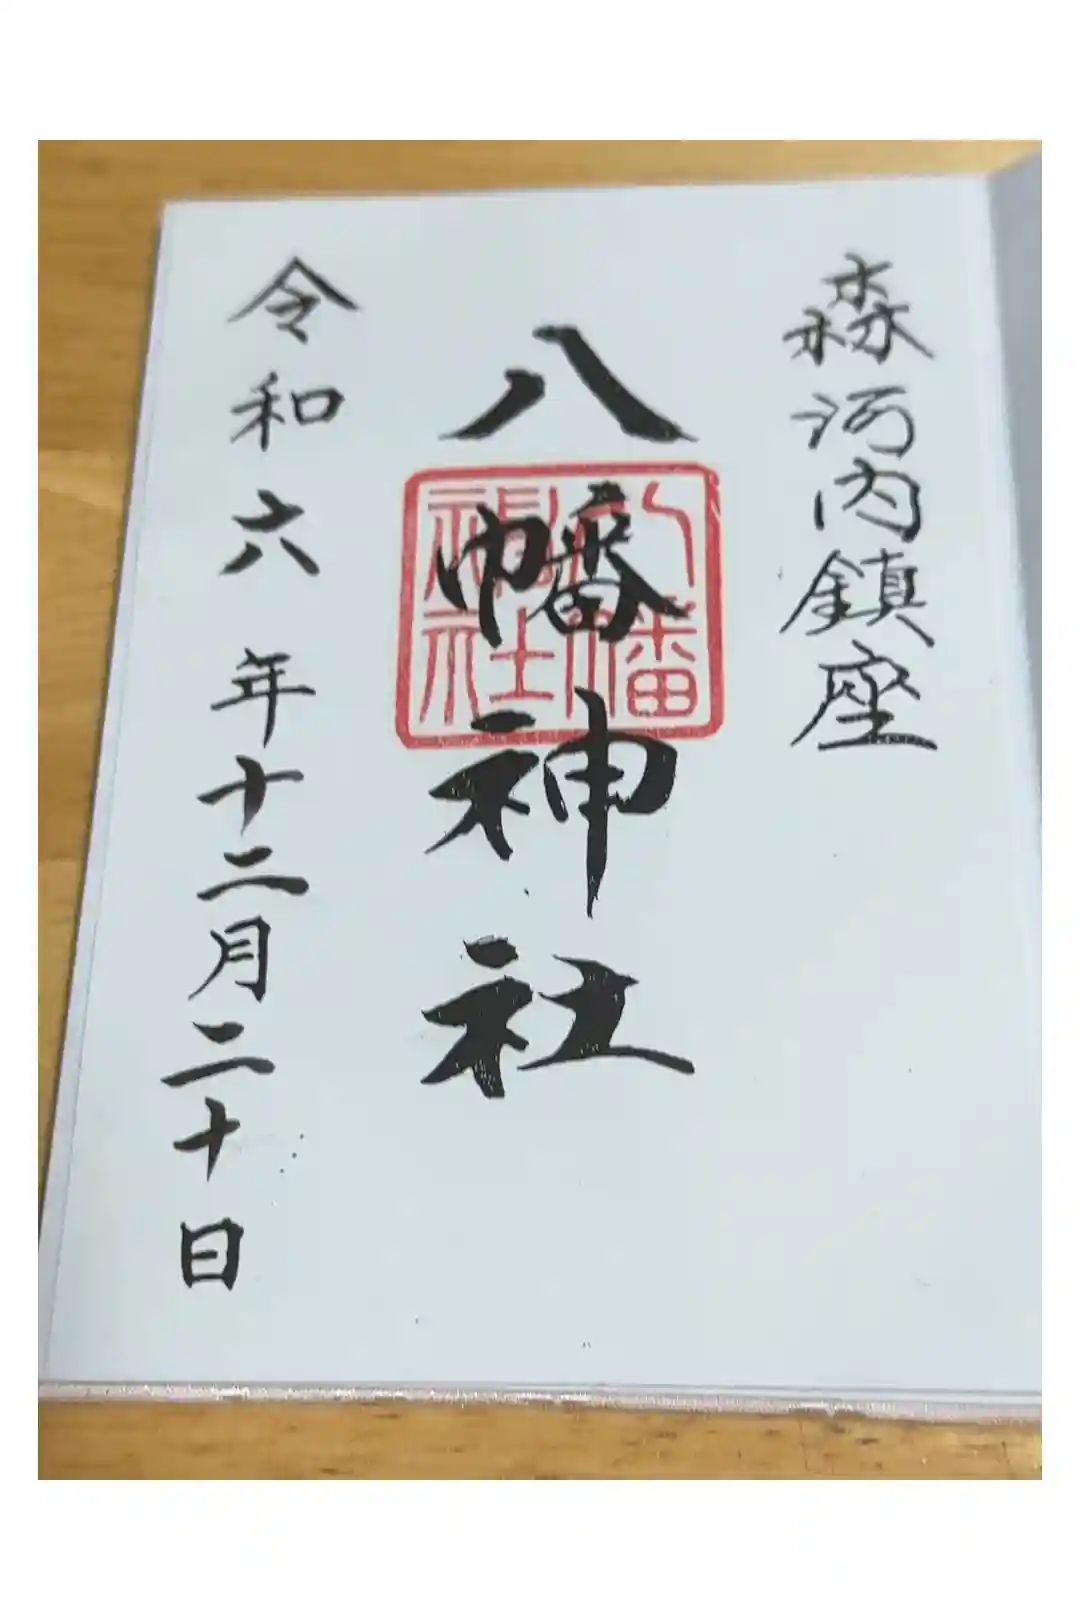 森河内鎮座
八幡神社
八幡
神社
令和六年十二月二十日